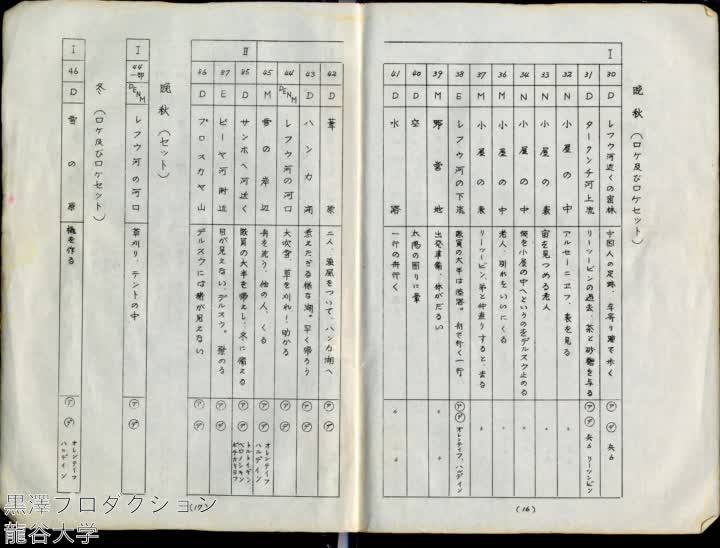 晩秋 (ロケ及びロケセット)
I
30 D レフウ河近くの密林 中国人の足跡、年寄り 歩く ア デ 兵6
31 D タークンチ河上流 リーツーピンの過去、茶と砂糖を与る ア デ 兵6 リーツンピン
32 N 小屋の中 アルセーニエフ、表を見る 〃
33 N 小屋の表 宙を見つめる老人 〃
34 N 小屋の中 僕を小屋の中へというのをデルスウ止める 〃
36 M 小屋の中 老人、別れをいいにくる 〃
37 M 小屋の表 リーツーピン、弟と仲直りすると、去る 〃
38 E レフウ河の下流 隊員の大半は帰る。舟で行く一行 ア デ オレンテイフ、ハルデイン
39 M 野営地 出発準備、体がだるい 〃
40 D 空 太陽の囲りに暈
41 D 水路 一行の舟行く 〃
(16)
42 D 葦原 二人、強風をついて、ハンカ湖へ ア デ
43 D ハンカ湖 煮えたぎる様な湖。早く帰ろう ア デ
44 DENM レフウ河の河口 大吹雪、草を刈れ!助かる ア デ
II
45 M 雪の岸辺 舟を洗う、他の人、くる ア デ オレンテイフ ハルデイン
35 D サンホヘ河近く 隊員の大半を帰えし、冬に備える ア デ トルトイギン ベロノシキン ボチカリヨフ
87 E ビーヤ河附近 目が見えない、デルスウ。 ア デ
86 D プロスカヤ山 デルスウには猪が見えない ア デ
晩秋 (セット)
I
44一部 DENM レフウ河の河口 草刈り、テントの中 ア デ
冬 (ロケ及びロケセット)
I
46 D 雪の原 橇を作る ア デ オレンテイフ ハルデイン
(17)
黒澤プロダクション
龍谷大学